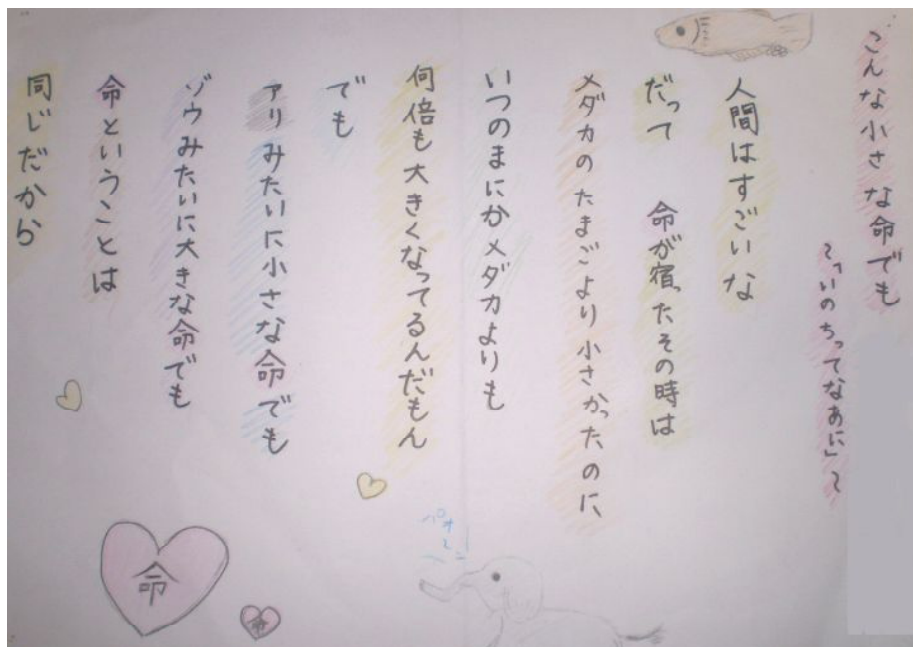 こんな小さな命でも
～「いのちってなあに」～
人間はすごいな
だって 命が宿ったその時は
メダカのたまごより小さかったのに
いつのまにかメダカよりも
何倍も大きくなってるんだもん
でも
アリみたいに小さな命でも
ゾウみたいに大きな命でも
命ということは
同じだから
パオーン
命
命